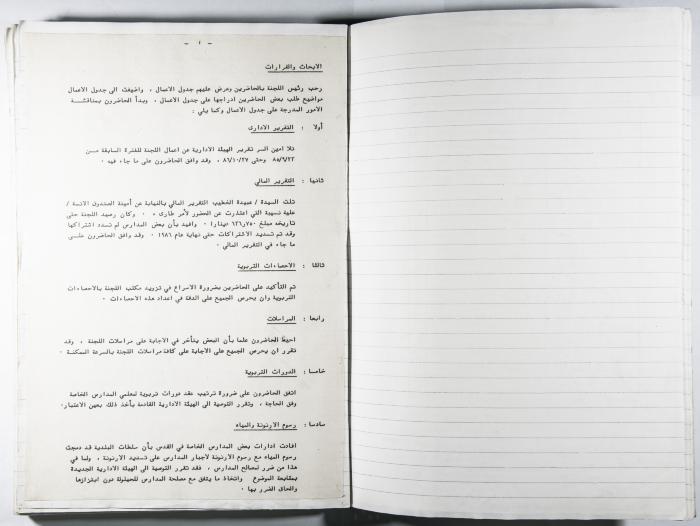 - ١ -
الابحاث والقرارات
رحب رئيس اللجنة بالحاضرين وعرض عليهم جدول الاعمال ، واضيفت الى جدول الاعمال
مواضيع طلب بعض الحاضرين ادراجها على جدول الاعمال ، وبدأ الحاضرون بمناقشة
الامور المدرجة على جدول الاعمال وكما يلي :
أولا : التقرير الادارى
تلا امين السر تقرير الهيئة الادارية عن اعمال اللجنة للفترة السابقة من
٨٥/٦/٢٢ وحتى ٨٦/١٠/٢٧ ، وقد وافق الحاضرون على ما جاء فيه ٠
ثانيها : التقرير المالي
تلت السيدة / عبيدة الخطيب التقرير المالي بالنيابة عن أمينة الصندوق الانسة /
علية نسيبة التي اعتذرت عن الحضور لأمر طارىء ٠ وكان رصيد اللجنة حتى
تاريخه مبلغ ٧٥٠ر٦٣٦ دينارا ٠ وافيد بأن بعض المدارس لم تسدد اشتراكها
وقد تم تسديد الاشتراكات حتى نهاية عام ١٩٨٦ ٠ وقد وافق الحاضرون على
ما جاء في التقرير المالي ٠
ثالثا : الاحصاءات التربوية
تم التأكيد على الحاضرين بضرورة الاسراع في تزويد مكتب اللجنة بالاحصاءات
التربوية وان يحرص الجميع على الدقة في اعداد هذه الاحصاءات ٠
رابعا : المراسلات
احيط الحاضرون علما بأن البعض يتأخر في الاجابة على مراسلات اللجنة ، وقد
تقرر ان يحرص الجميع على الاجابة على كافة مراسلات اللجنة بالسرعة الممكنة ٠
خامسا : الدورات التربوية
اتفق الحاضرون على ضرورة ترتيب عقد دورات تربوية لمعلمي المدارس الخاصة
وفق الحاجة ، وتقرر التوصية الى الهيئة الادارية القادمة بأخذ ذلك بعين الاعتبار٠
سادسا : رسوم الارنونة والمياه
افادت ادارات بعض المدارس الخاصة في القدس بأن سلطات البلدية قد دمجت
رسوم المياه مع رسوم الارنونة لأجبار المدارس على تسديد الارنونة ، ولما في
هذا من ضرر لمصالح المدارس ، فقد تقرر التوصية الى الهيئة الادارية الجديدة
بمتابعة الموضوع واتخاذ ما يتفق مع مصلحة المدارس للحيلولة دون ابتزازها
والحاق الضرر بها ٠